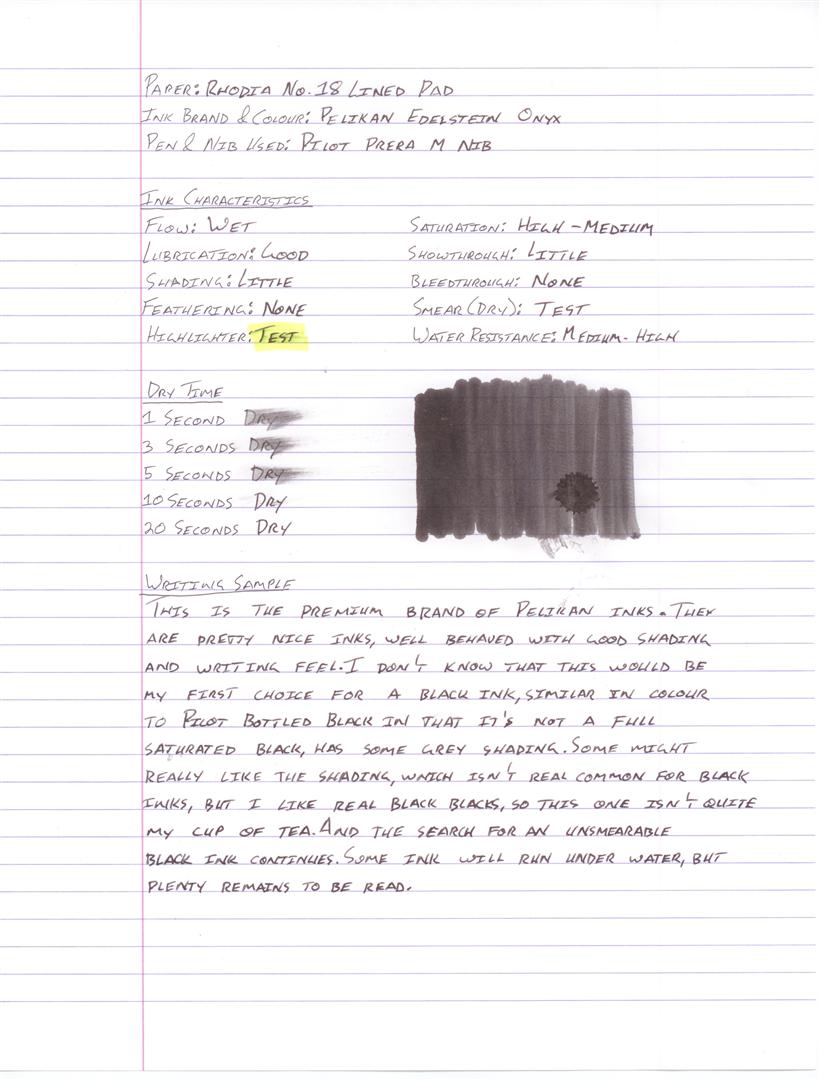 PAPER: RHODIA NO. 18 LINED PAD
INK BRAND & COLOUR: PELIKAN EDELSTEIN ONYX
PEN & NIB USED: PILOT PRERA M NIB
INK CHARACTERISTICS
FLOW: WET SATURATION: HIGH-MEDIUM
LUBRICATION: GOOD SHOWTHROUGH: LITTLE
SHADING: LITTLE BLEEDTHROUGH: NONE
FEATHERING: NONE SMEAR (DRY): TEST
HIGHLIGHTER: TEST WATER RESISTANCE: MEDIUM-HIGH
DRY TIME
1 SECOND DRY
3 SECONDS DRY
5 SECONDS DRY
10 SECONDS DRY
20 SECONDS DRY
WRITING SAMPLE
THIS IS THE PREMIUM BRAND OF PELIKAN INKS. THEY
ARE PRETTY NICE INKS, WELL BEHAVED WITH GOOD SHADING
AND WRITING FEEL. I DON'T KNOW THAT THIS WOULD BE
MY FIRST CHOICE FOR A BLACK INK, SIMILAR IN COLOUR
TO PILOT BOTTLED BLACK IN THAT IT'S NOT A FULL
SATURATED BLACK, HAS SOME GREY SHADING. SOME MIGHT
REALLY LIKE THE SHADING, WHICH ISN'T REAL COMMON FOR BLACK
INKS, BUT I LIKE REAL BLACK BLACKS, SO THIS ONE ISN'T QUITE
MY CUP OF TEA. AND THE SEARCH FOR AN UNSMEARABLE
BLACK INK CONTINUES. SOME INK WILL RUN UNDER WATER, BUT
PLENTY REMAINS TO BE READ.